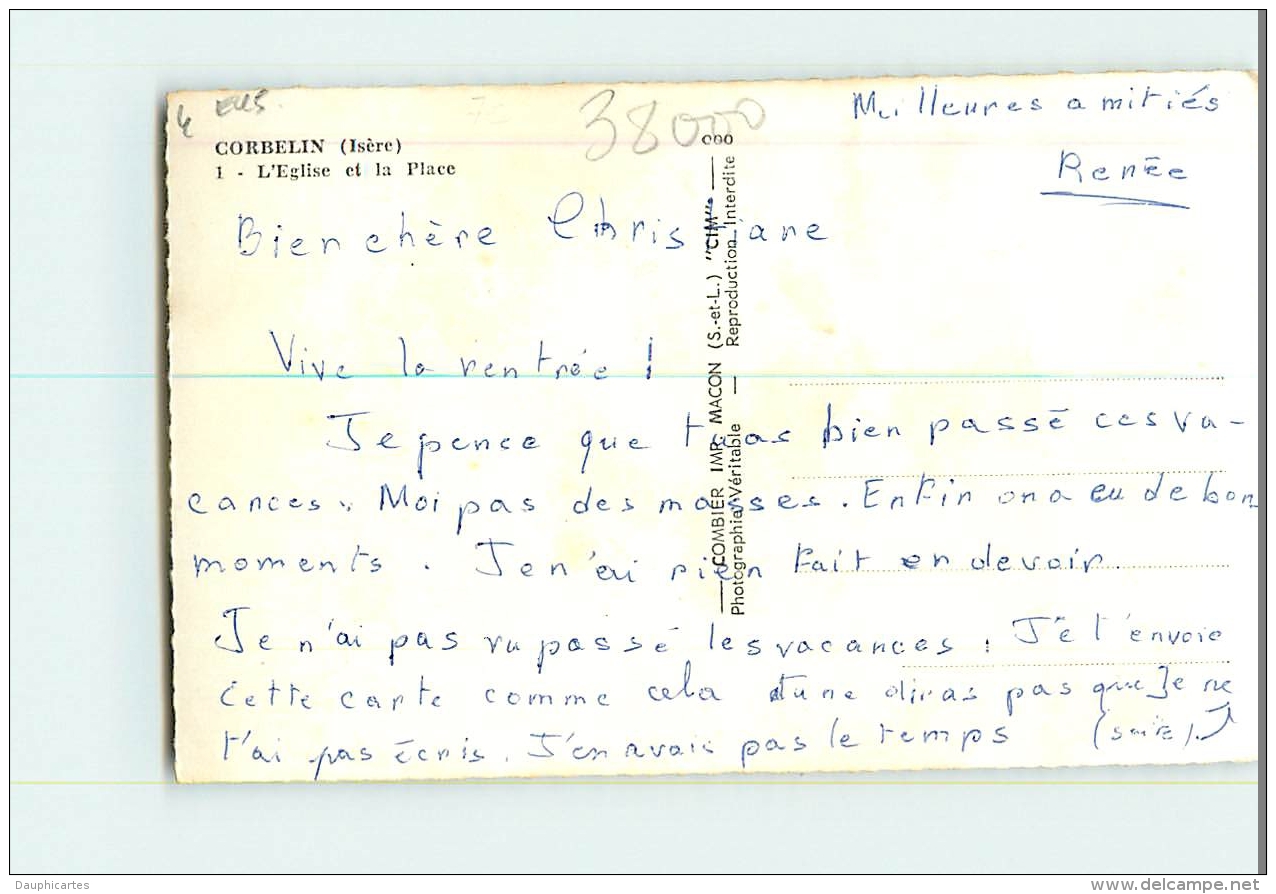 38000
CORBELIN (Isère)
1 - L'Eglise et la Place
Meilleures amitiés
Renée
Bien chère Christiane
Vive la rentrée !
Je pence que tu as bien passé ces va-
cances. Moi pas des masses. Enfin on a eu de bon
moments. Je n'ai rien fait en devoir.
Je n'ai pas vu passé les vacances. Je t'envoie
cette carte comme cela tu ne diras pas que Je ne
t'ai pas écris. J'en avais pas le temps (suite).
COMBIER IMP. MACON (S.-et-L.) "CIM"
Photographie Véritable — Reproduction Interdite
Dauphicartes
www.delcampe.net